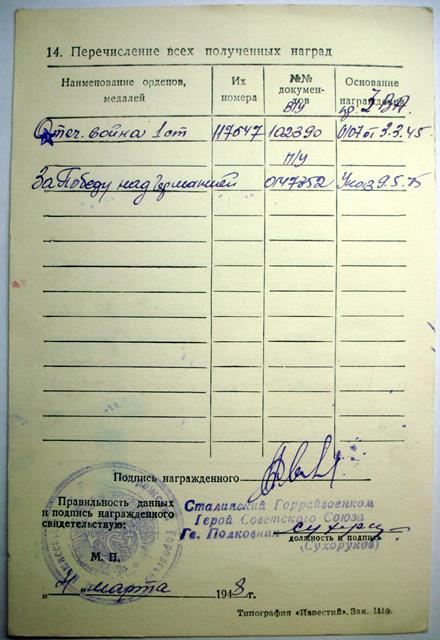 14. Перечисление всех полученных наград
Наименование орденов, медалей
Их номера
№№ документов
Основание награждения
в/у
пр. 2 ВА
Отеч. война 1 ст 117647 102390 0107 от 3.3.45
п/у
За Победу над Германией 0147352 Указ 9.5.45
Подпись награжденного
Правильность данных
и подпись награжденного
свидетельствую:
Сталинский Горрайвоенком
Герой Советского Союза
Гв. Подковник
должность и подпись
(Сухоруков)
М. П.
„ “ марта 1948 г.
Типография «Известий». Зак. 1110.